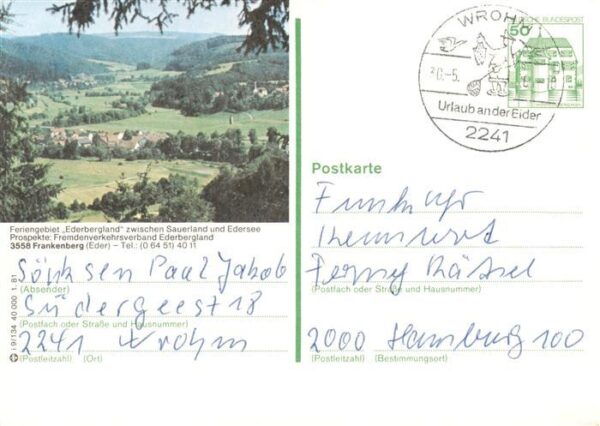 Feriengebiet „Ederbergland" zwischen Sauerland und Edersee
Prospekte: Fremdenverkehrsverband Ederbergland
3558 Frankenberg (Eder) – Tel.: (0 64 51) 40 11
Sönksen Paul Jakob
(Absender)
Südergeest 18
(Postfach oder Straße und Hausnummer)
2241 Wrohm
(Postleitzahl) (Ort)
i 9/134 40 000 1.81
WROHM
Urlaub an der Eider
2241
50
DEUTSCHE BUNDESPOST
Postkarte
Funkuhr
Kennwort
(Postfach oder Straße und Hausnummer)
2000 Hamburg 100
(Postleitzahl) (Bestimmungsort)